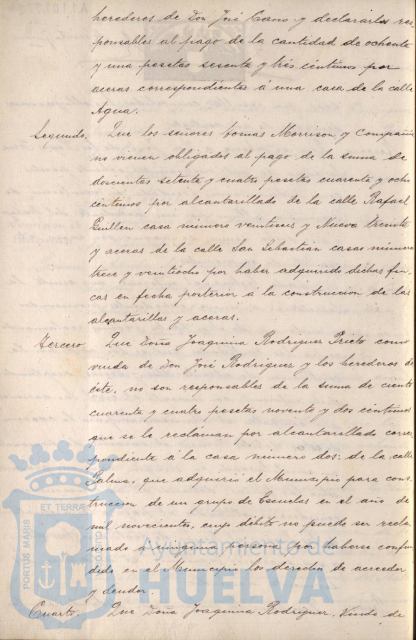 herederos de Don José Cano y declararlos res-
ponsables al pago de la cantidad de ochenta
y una pesetas sesenta y tres céntimos por
aceras correspondientes á una casa de la calle
Agua.
Segundo. Que los señores Tomas Morrison y Compañía
no vienen obligados al pago de la suma de
doscientos setenta y cuatro pesetas cuarenta y ocho
céntimos por alcantarillado de la calle Rafael
Guillen casa número veintiseis y Nueva treinta
y aceras de la calle San Sebastian casas número
trece y veintiocho por haber adquirido dichas fin-
cas en fecha posterior á la construccion de las
alcantarillas y aceras.
Tercero. Que Doña Joaquina Rodriguez Prieto como
viuda de Don José Rodriguez y los herederos de
éste, no son responsables de la suma de ciento
cuarenta y cuatro pesetas noventa y dos céntimos
que se le reclaman por alcantarillado corres-
pondiente á la casa número dos, de la calle
que adquirió el Municipio para cons-
truccion de un grupo de Escuelas en el año de
mil novecientos, cuyo débito no puede ser recla-
mado a ninguna persona por haberse confun-
dido en el Municipio los derechos de acreedor
y deudor.
Cuarto. Que Doña Joaquina Rodriguez, Viuda de
PORTUS MARIS ET TERRÆ
Ayuntamiento de
HUELVA